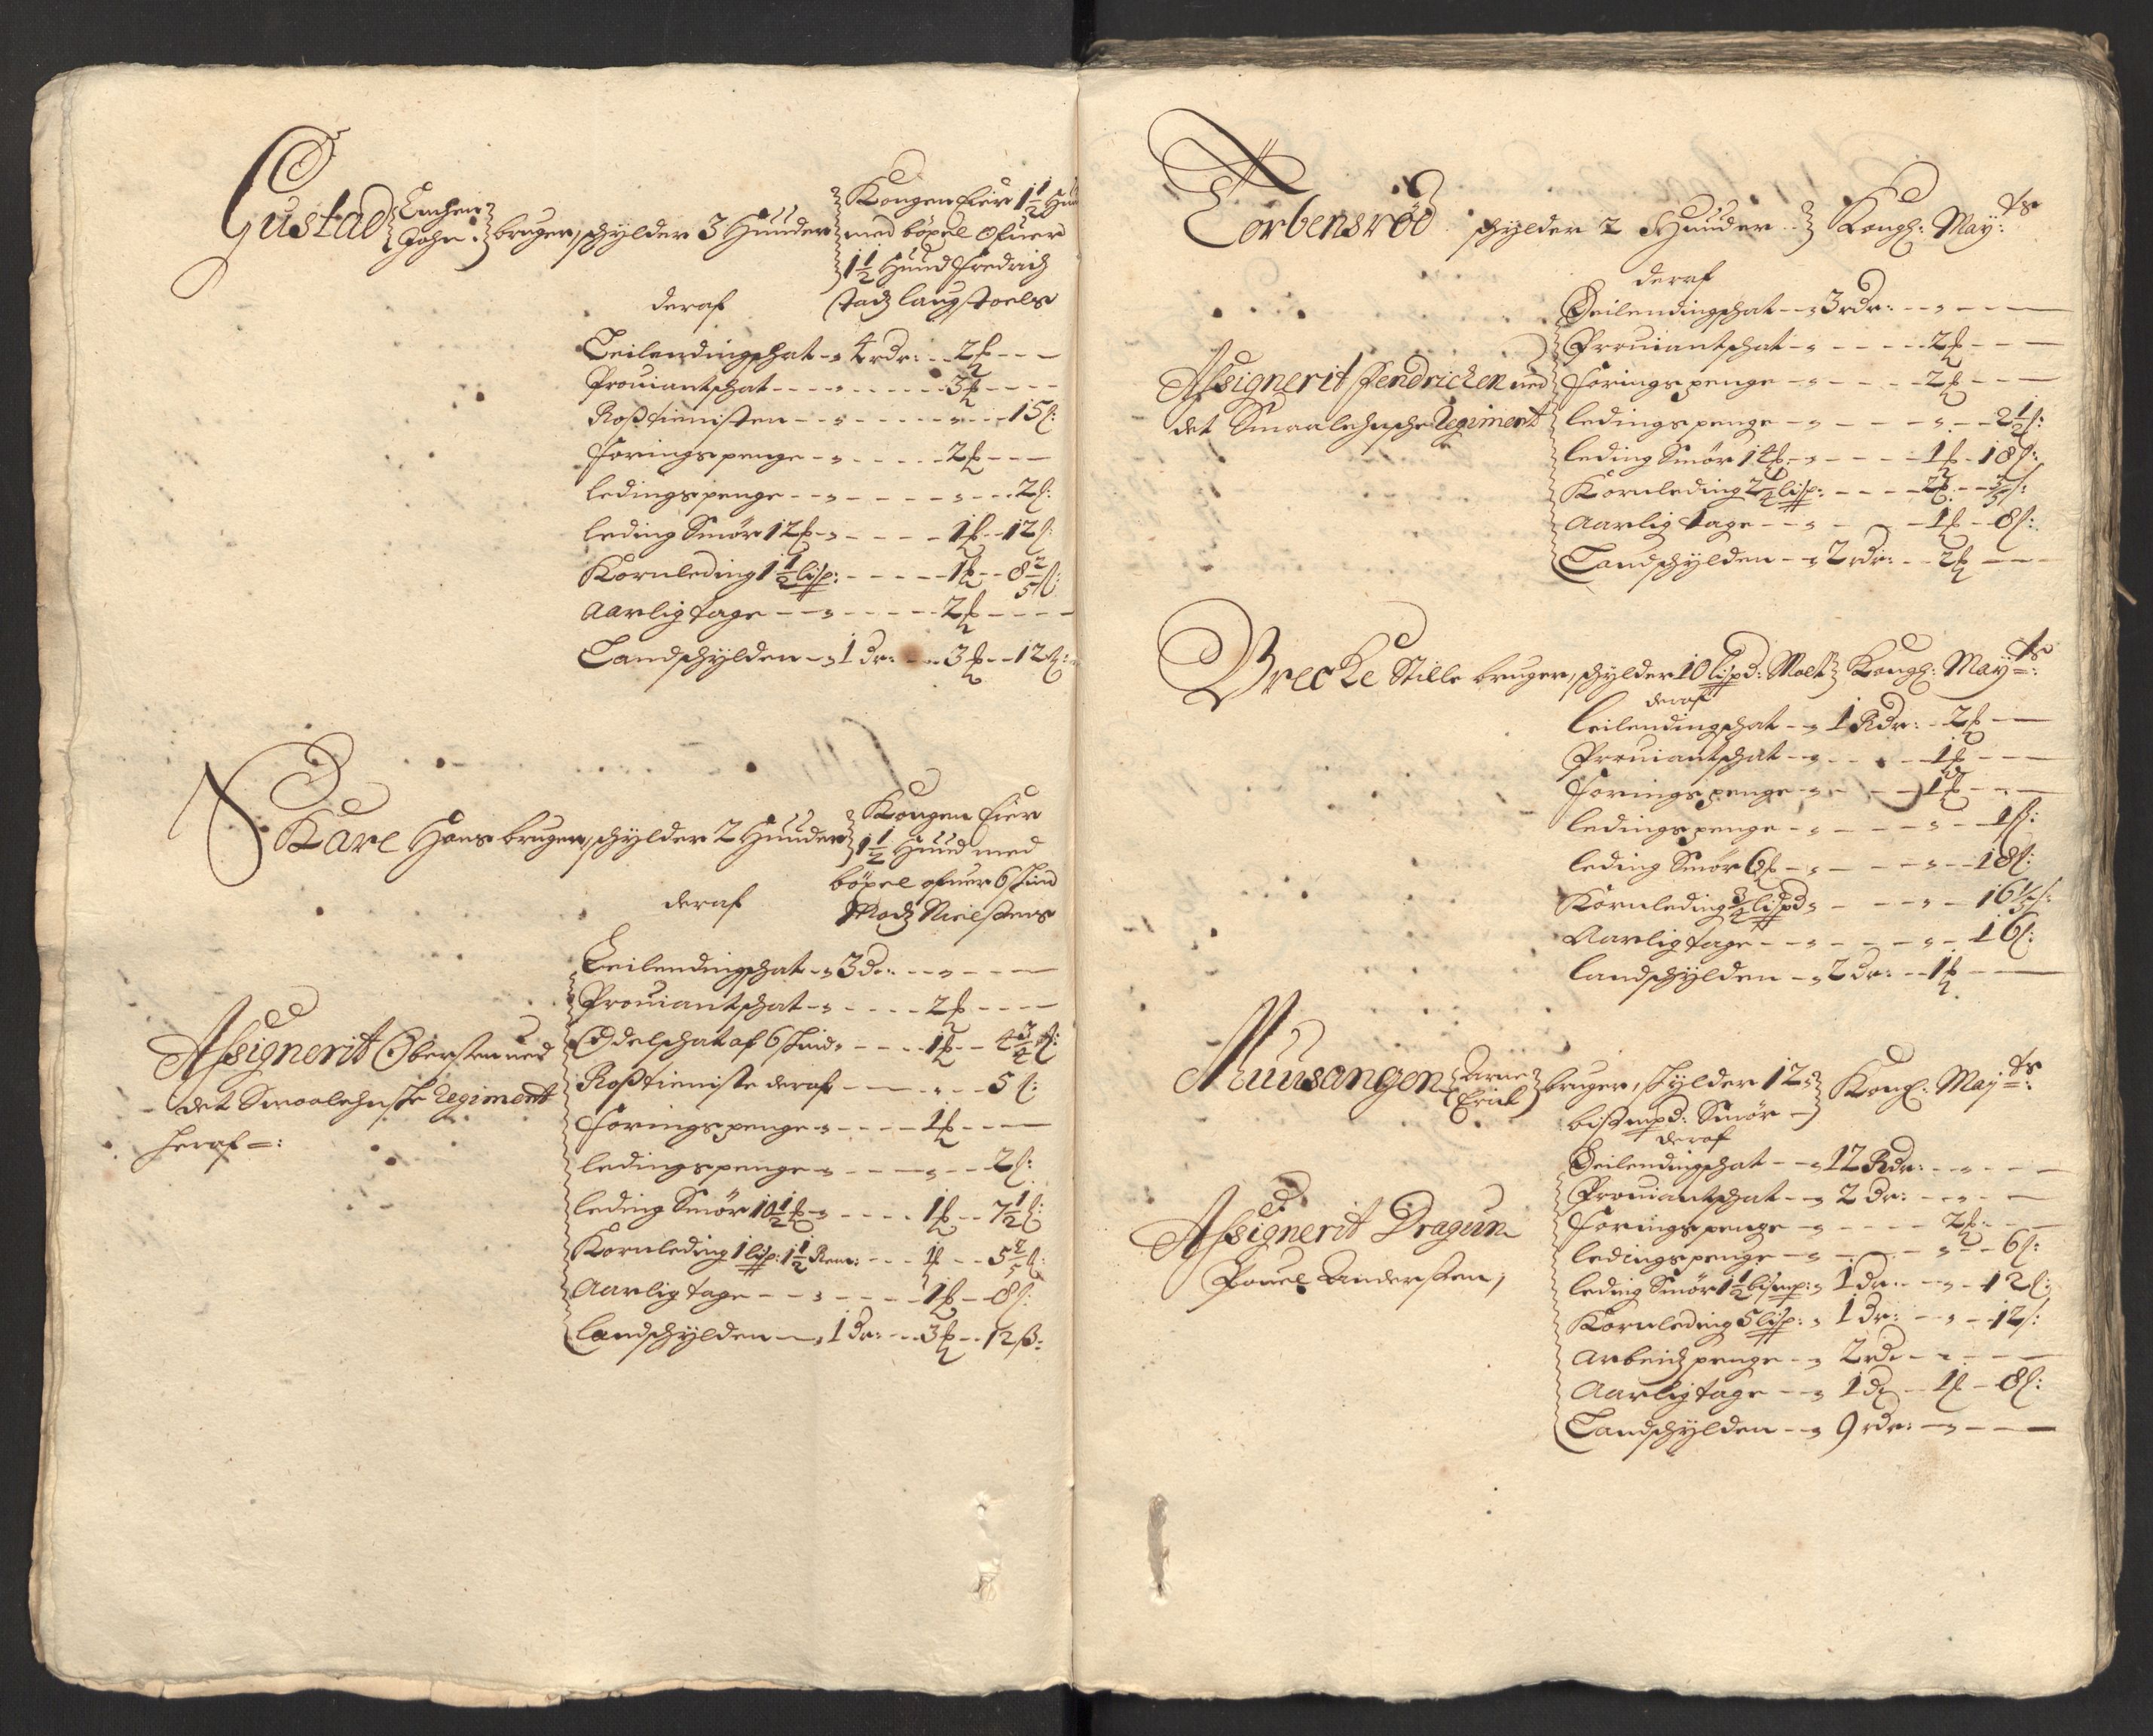 Gustad Enchen John bruger, schylder 3 Huuder
Kongen Eier 1½ Hu
med böxel Ofuer
1½ Huud Fredrich
stadz laugstoels
deraf
Leilendingschat - 4 rdr: - 2 ß
Prouiantschat - 3 ß
Rostieniesten - 15 ß:
Foringspenge - 2 ß
ledingspenge - 2 ß:
leding Smör 12 ß - 1 ß - 12 ß:
Kornleding 1½ lisp: - 1 ß - 8 2/5 ß:
Aarlig tage - 2 ß
Landschylden - 1 dr: - 3 ß - 12 ß:
Kare Hans bruger, schylder 2 Huuder
Kongen Eier
1½ Huud med
böxel ofuer 6 skind
Madz Nielsens
deraf
Leilendingschat - 3 dr:
Prouiantschat - 2 ß
Odelschat af 6 skind - 1 ß - 4¾ ß:
Rostieniste deraf - 5 ß:
Foringspenge - 1 ß
ledingspenge - 2 ß:
leding Smör 10½ ß - 1 ß - 7½ ß:
Kornleding 1 lisp: 1½ Rem: - 1 ß - 5 2/5 ß:
Aarlig tage - 1 ß - 8 ß:
Landschylden - 1 dr: - 3 ß - 12 ß:
Assignerit Obersten ued
det Smaalehnske Regiment
heraf
Torbensröd schylder 2 Huuder Kongl: May:ts
deraf
Leilendingschat - 3 rdr:
Prouiantschat - 2 ß
Foringspenge - 2 ß
ledingspenge - 2½ ß:
leding Smör 14 ß - 1 ß - 18 ß:
Kornleding 2¼ lisp: - 2 ß - 3/5 ß:
Aarlig tage - 1 ß - 8 ß:
Landschylden - 2 rdr: - 2 ß
Assignerit Fendricken ued
det Smaalehnsche Regiment
Brecke Stille bruger, schylder 10 lispd: Malt Kongl: May:ts
deraf
Leilendingschat - 1 Rdr: - 2 ß
Prouiantschat - 1 ß
Foringspenge - 1 ß
ledingspenge - 1 ß:
leding Smör 6 ß - 18 ß:
Kornleding ¾ lispd - 16 1/5 ß:
Aarlig tage - 16 ß:
landschylden - 2 dr: - 1 ß
Muusangen Arne Erick bruger, skylder 12
bismpd: Smör
Kongl: May:ts
deraf
Leilendingschat - 12 Rdr:
Prouiantschat - 2 dr:
Foringspenge - 2 ß
ledingspenge - 6 ß:
leding Smör 1½ bismp: - 1 dr: - 12 ß:
Kornleding 5 lisp: - 1 dr: - 12 ß:
Arbeidzpenge - 2 rd:
Aarlig tage - 1 dr - 1 ß - 8 ß:
Landschylden - 9 rdr:
Assignerit Dragun
Pouel Andersen,